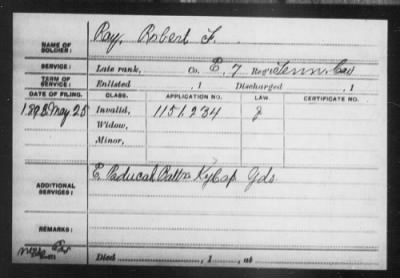 NAME OF SOLDIER: Ray, Robert F.
SERVICE: Late rank, Co. E, 7 Reg't Tenn. Cav
TERM OF SERVICE: Enlisted , 1 Discharged , 1
DATE OF FILING. CLASS. APPLICATION NO. LAW. CERTIFICATE NO.
1893 May 25 Invalid, 1151.234
Widow,
Minor,
ADDITIONAL SERVICES: E. Paducah Battn Ky Cap Gds
REMARKS:
Died , 1 , at